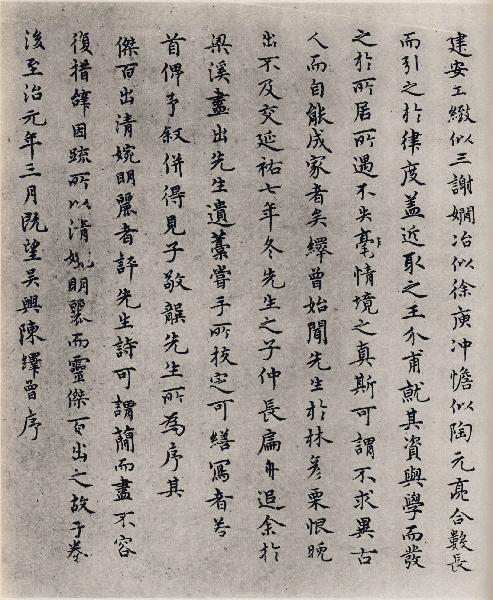 建安工緻似三謝嫺冶似徐庾冲憺似陶元亮合數長
而引之於律度蓋近取之王介甫就其資與學而發
之於所居所遇不失毫情境之真斯可謂不求異古
人而自能成家者矣繹曾始聞先生於林彥栗恨晚
出不及交延祐七年冬先生之子仲長扁舟追余於
梁溪盡出先生遺藁嘗手所校定可繕寫者若
首俾予叙併得見子敬龔先生所為序其
傑百出清婉明麗者評先生詩可謂簡而盡不容
復措辝因疏所以清婉明麗而靈傑百出之故于卷
後至治元年三月既望吳興陳繹曾序